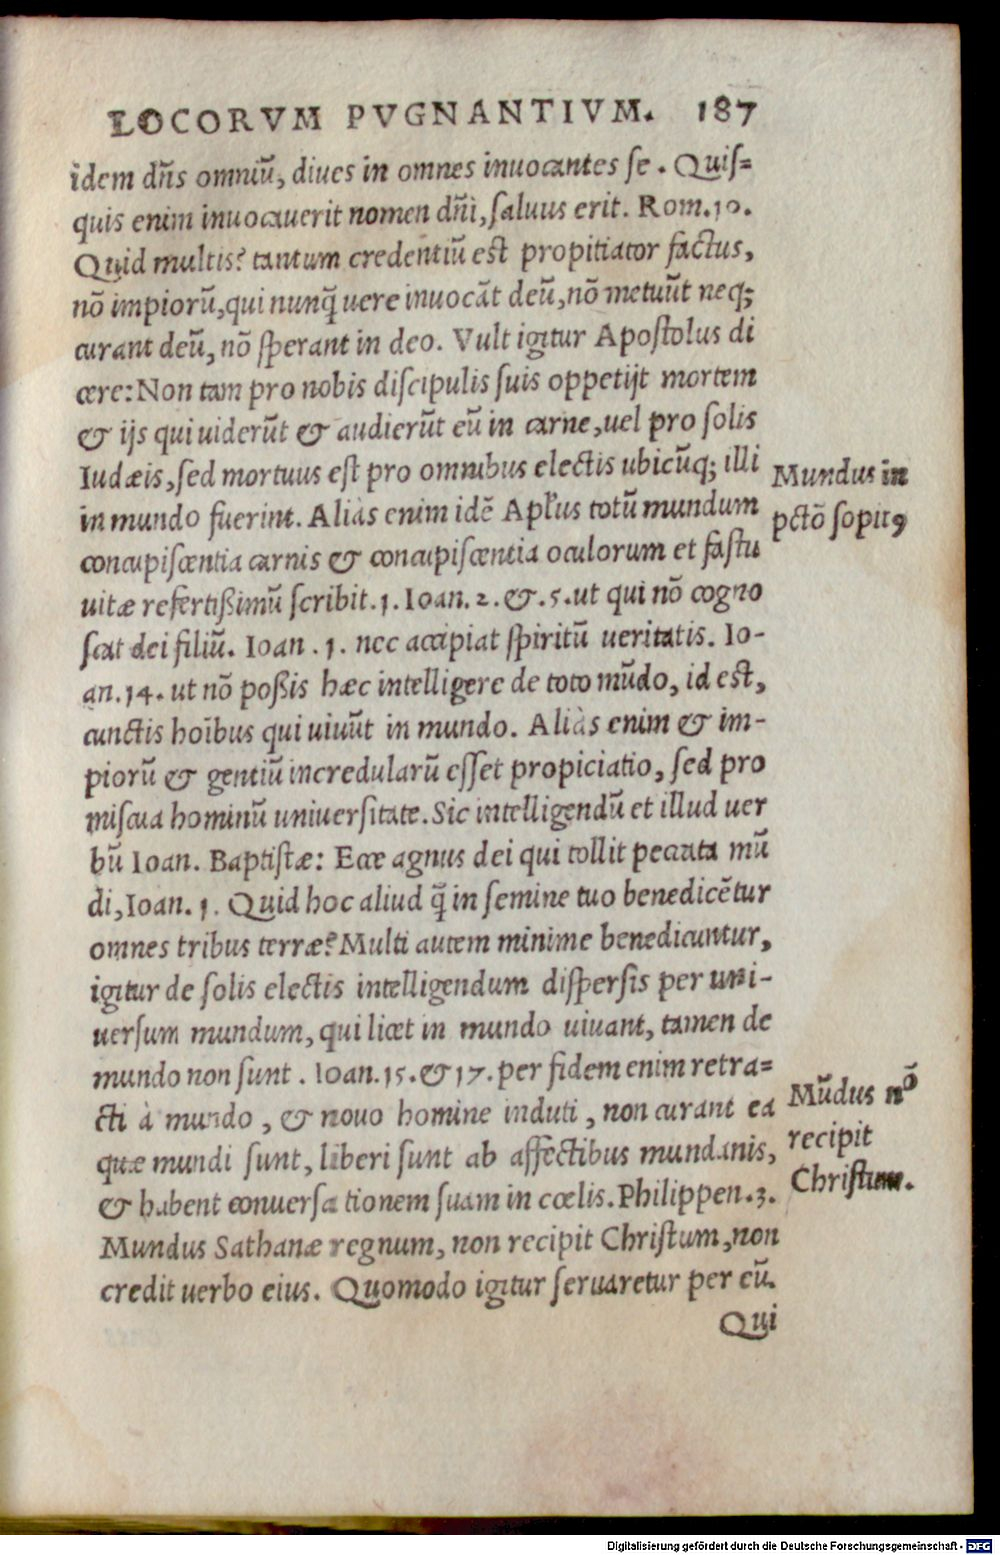 LOCORVM PVGNANTIVM. 187
idem dñs omniũ, diues in omnes inuocantes se. Quis=
quis enim inuocauerit nomen dñi, saluus erit. Rom.10.
Quid multis? tantum credentiũ est propitiator factus,
nõ impiorũ, qui nunq̃ uere inuocãt deũ, nõ metuũt neq;
curant deũ, nõ sperant in deo. Vult igitur Apostolus di
cere: Non tam pro nobis discipulis suis oppetijt mortem
& ijs qui uiderũt & audierũt eũ in carne, uel pro solis
Iudæis, sed mortuus est pro omnibus electis ubicũq; illi
in mundo fuerint. Aliàs enim idẽ Apl'us totũ mundum
concupiscentia carnis & concupiscentia oculorum et fastu
uitæ refertißimũ scribit.1. Ioan. 2. &. 5. ut qui nõ cogno
scat dei filiũ. Ioan. 1. nec accipiat spiritũ ueritatis. Io-
an.14. ut nõ poßis hæc intelligere de toto mũdo, id est,
cunctis hoĩbus qui uiuũt in mundo. Aliàs enim & im-
piorũ & gentiũ incredularũ esset propiciatio, sed pro
miscua hominũ uniuersitate. Sic intelligendũ et illud uer
bũ Ioan. Baptistæ: Ecce agnus dei qui tollit peccata mũ
di, Ioan. 1. Quid hoc aliud q̃ in semine tuo benedicẽtur
omnes tribus terræ? Multi autem minime benedicuntur,
igitur de solis electis intelligendum dispersis per uni-
uersum mundum, qui licet in mundo uiuant, tamen de
mundo non sunt. Ioan.15. & 17. per fidem enim retra=
cti à mundo, & nouo homine induti, non curant ea
quæ mundi sunt, liberi sunt ab affectibus mundanis,
& habent conuersa tionem suam in cœlis. Philippen.3.
Mundus Sathanæ regnum, non recipit Christum, non
credit uerbo eius. Quomodo igitur seruaretur per eũ.
Qui
Mundus in
pctõ sopitꝰ
Mũdus nõ
recipit
Christum.
Digitalisierung gefördert durch die Deutsche Forschungsgemeinschaft - DFG